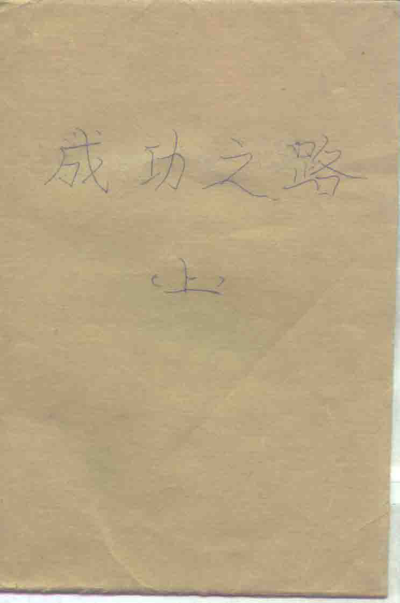 成功之路
（上）